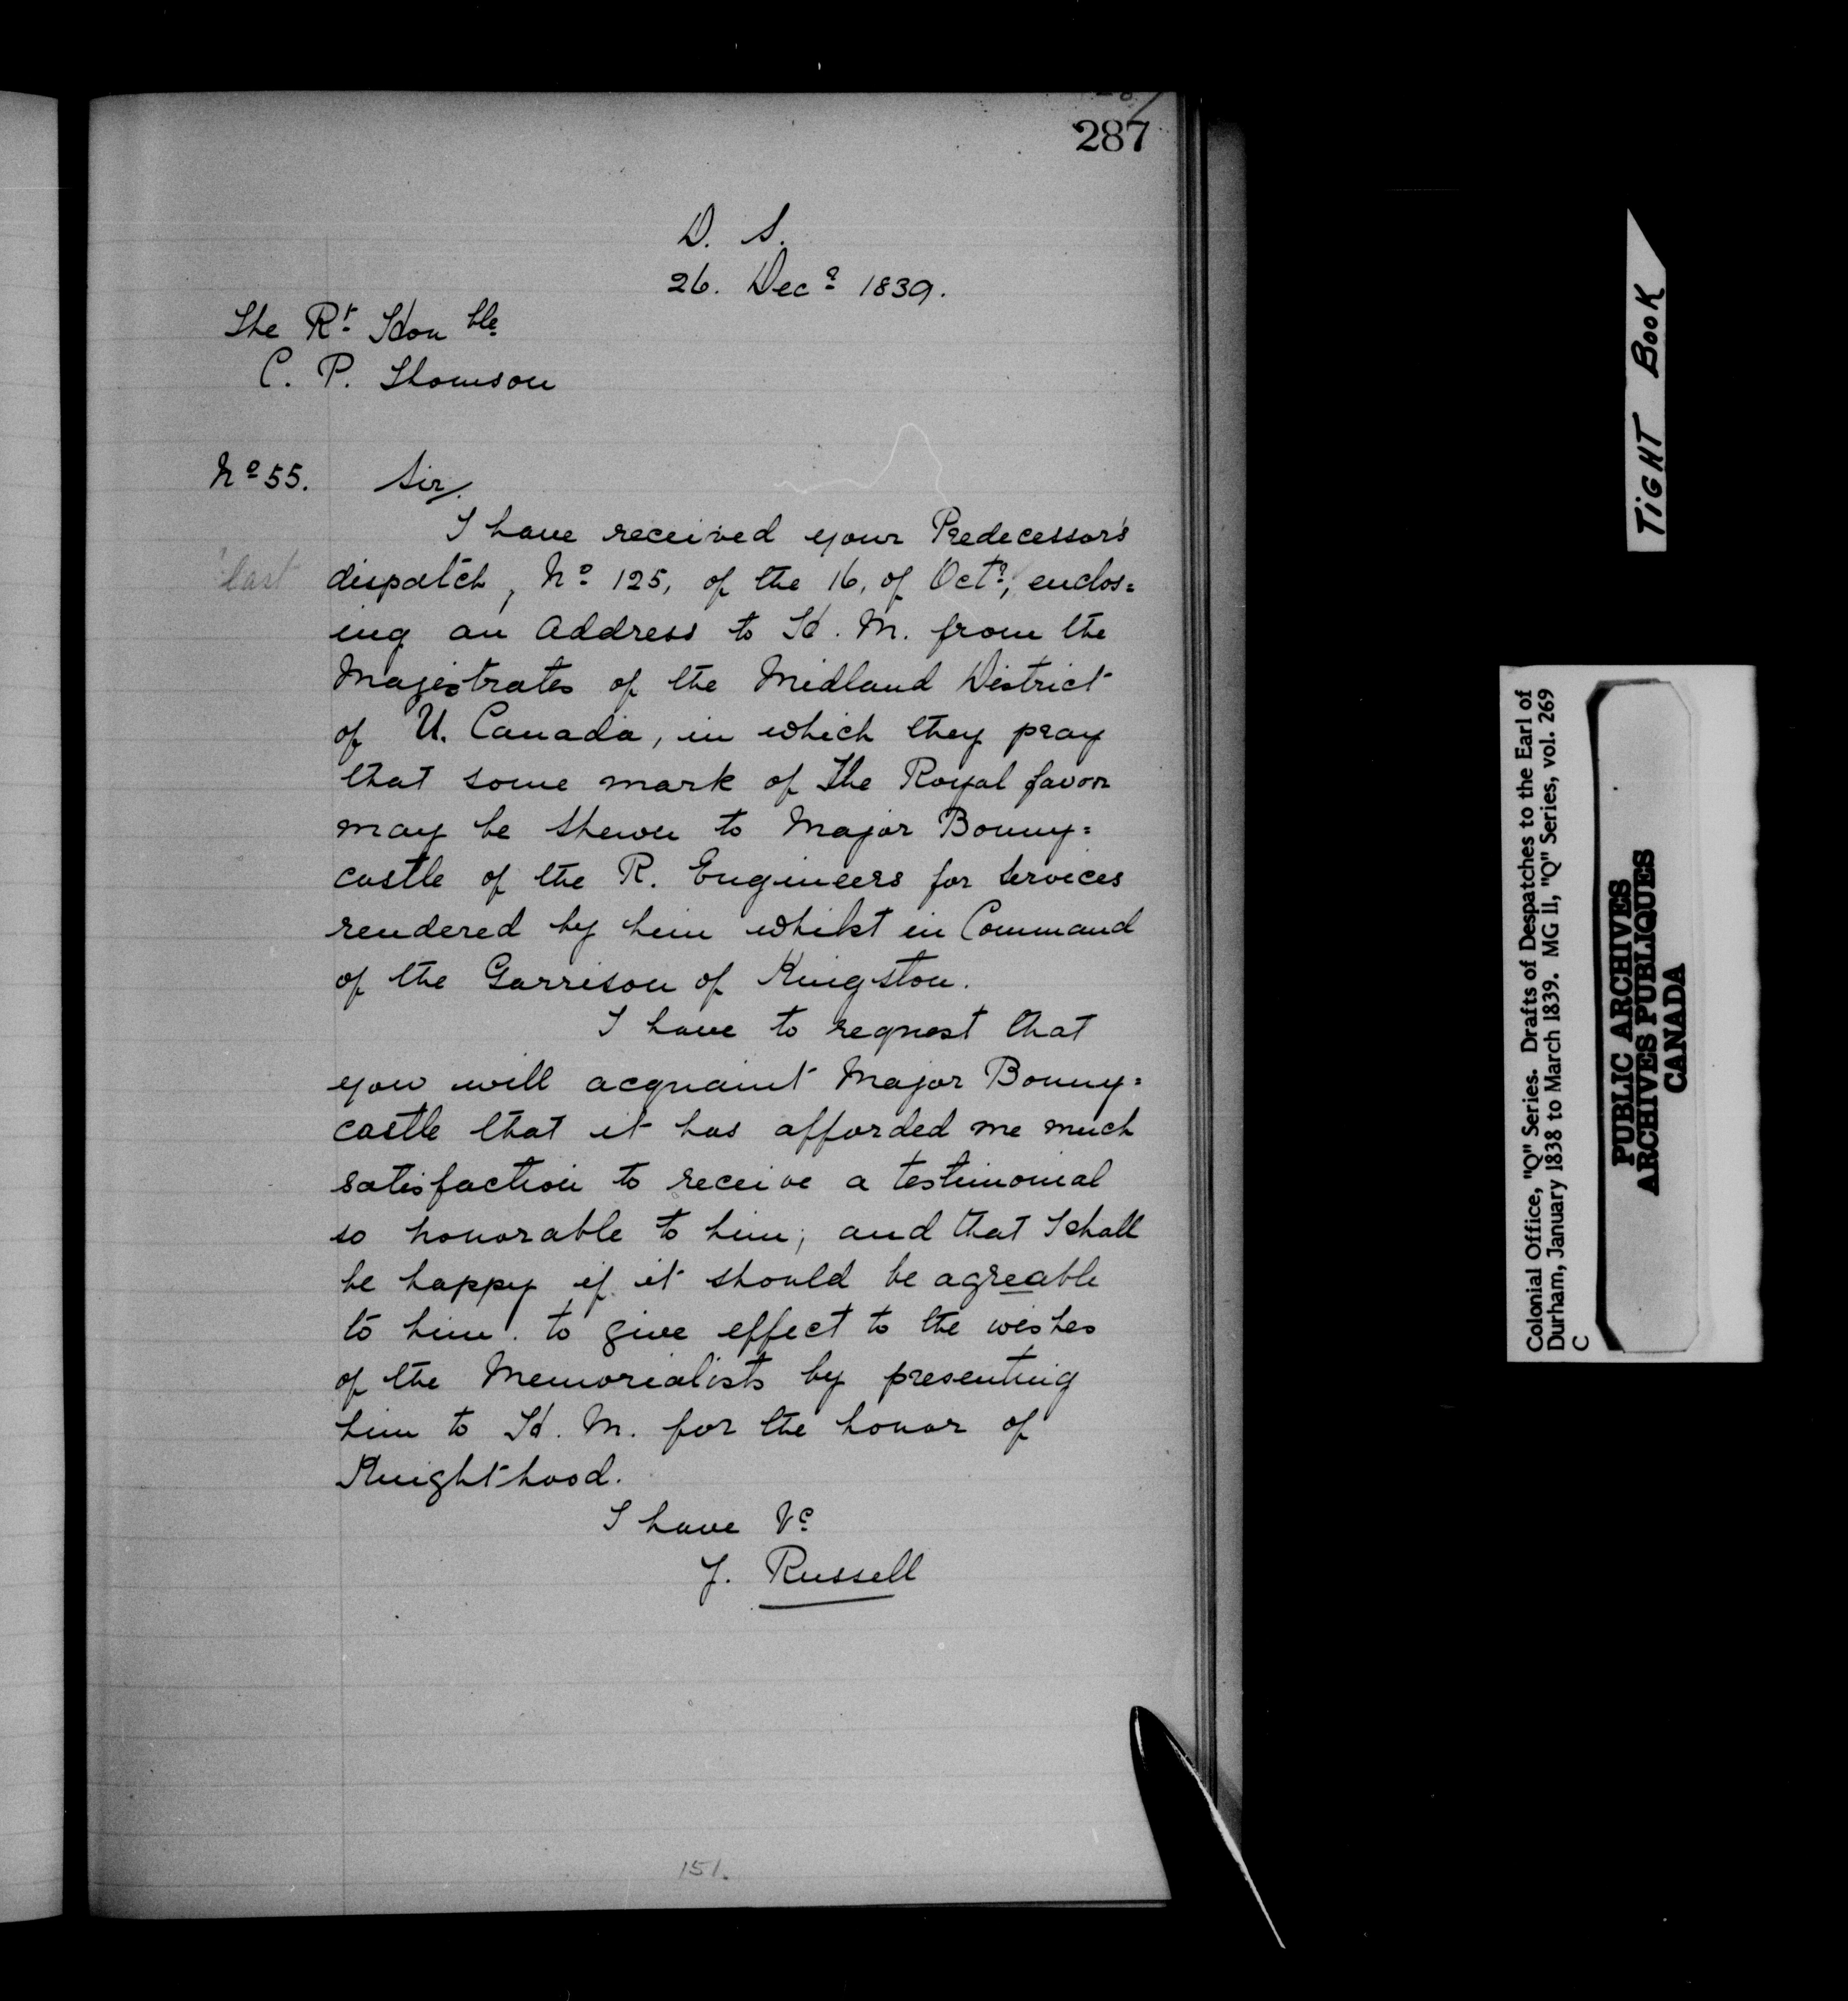 287
D. S.
26. Decr 1839.
The Rt Honble
C. P. Thomson
No 55. Sir,
I have received your Predecessor's
last dispatch, No 125, of the 16, of Octr, enclos=
ing an Address to H. M. from the
Magistrates of the Midland District
of U. Canada, in which they pray
that some mark of the Royal favor
may be shewn to Major Bonny=
castle of the R. Engineers for services
rendered by him whilst in Command
of the Garrison of Kingston.
I have to request that
you will acquaint Major Bonny=
castle that it has afforded me much
satisfaction to receive a testimonial
so honorable to him; and that I shall
be happy if it should be agreable
to him. to give effect to the wishes
of the Memorialists by presenting
him to H. M. for the honor of
Knighthood.
I have &c
J. Russell
151.
TIGHT BOOK
Colonial Office, "Q" Series. Drafts of Despatches to the Earl of
Durham, January 1838 to March 1839. MG 11, "Q" Series, vol. 269
C
PUBLIC ARCHIVES
ARCHIVES PUBLIQUES
CANADA